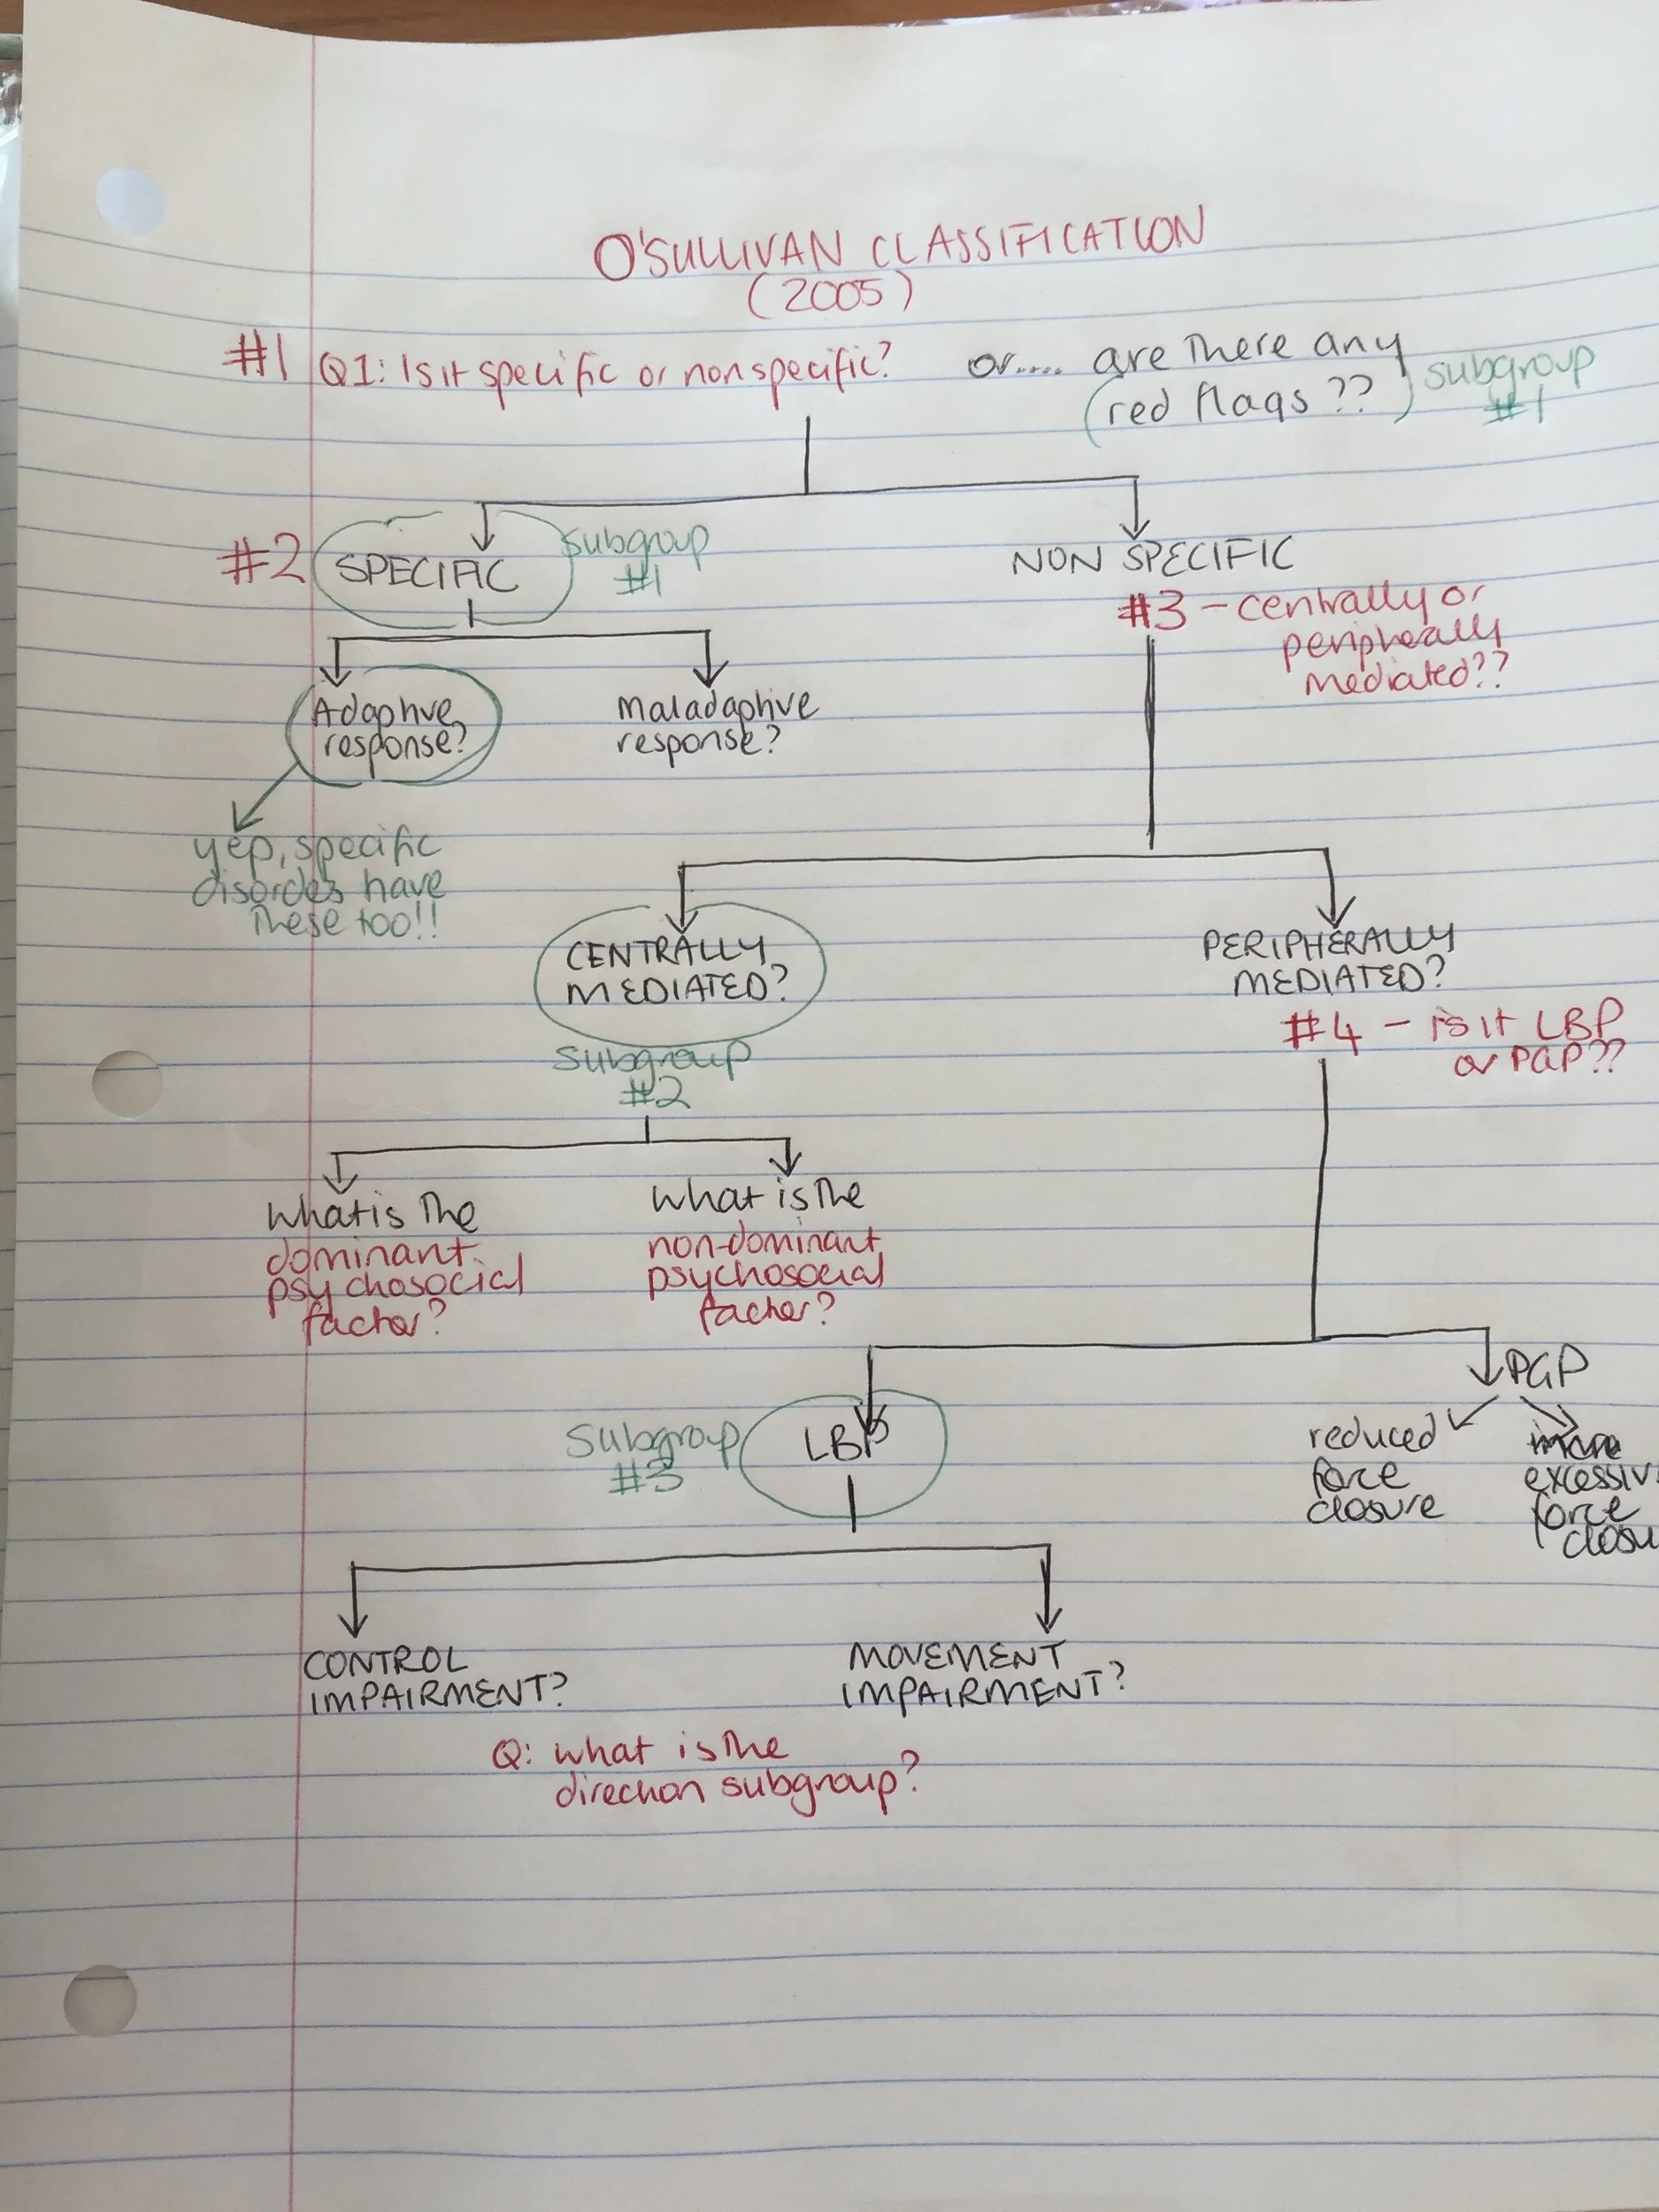 O'SULLIVAN CLASSIFICATION
(2005)
#1 Q1: Is it specific or nonspecific? or.... are there any
(red flags ??) subgroup
#1
#2 SPECIFIC subgroup
#1
NON SPECIFIC
#3 - centrally or
peripherally
mediated??
Adaptive
response?
Maladaptive
response?
yep, specific
disordes have
these too!!
CENTRALLY
MEDIATED?
Subgroup
#2
PERIPHERALLY
MEDIATED?
#4 - is it LBP
or PGP??
What is the
dominant
psychosocial
factor?
What is the
non-dominant
psychosocial
factor?
PGP
reduced
force
closure
excessiv
force
closu
Subgroup
#3
LBP
CONTROL
IMPAIRMENT?
MOVEMENT
IMPAIRMENT?
Q: what is the
direction subgroup?